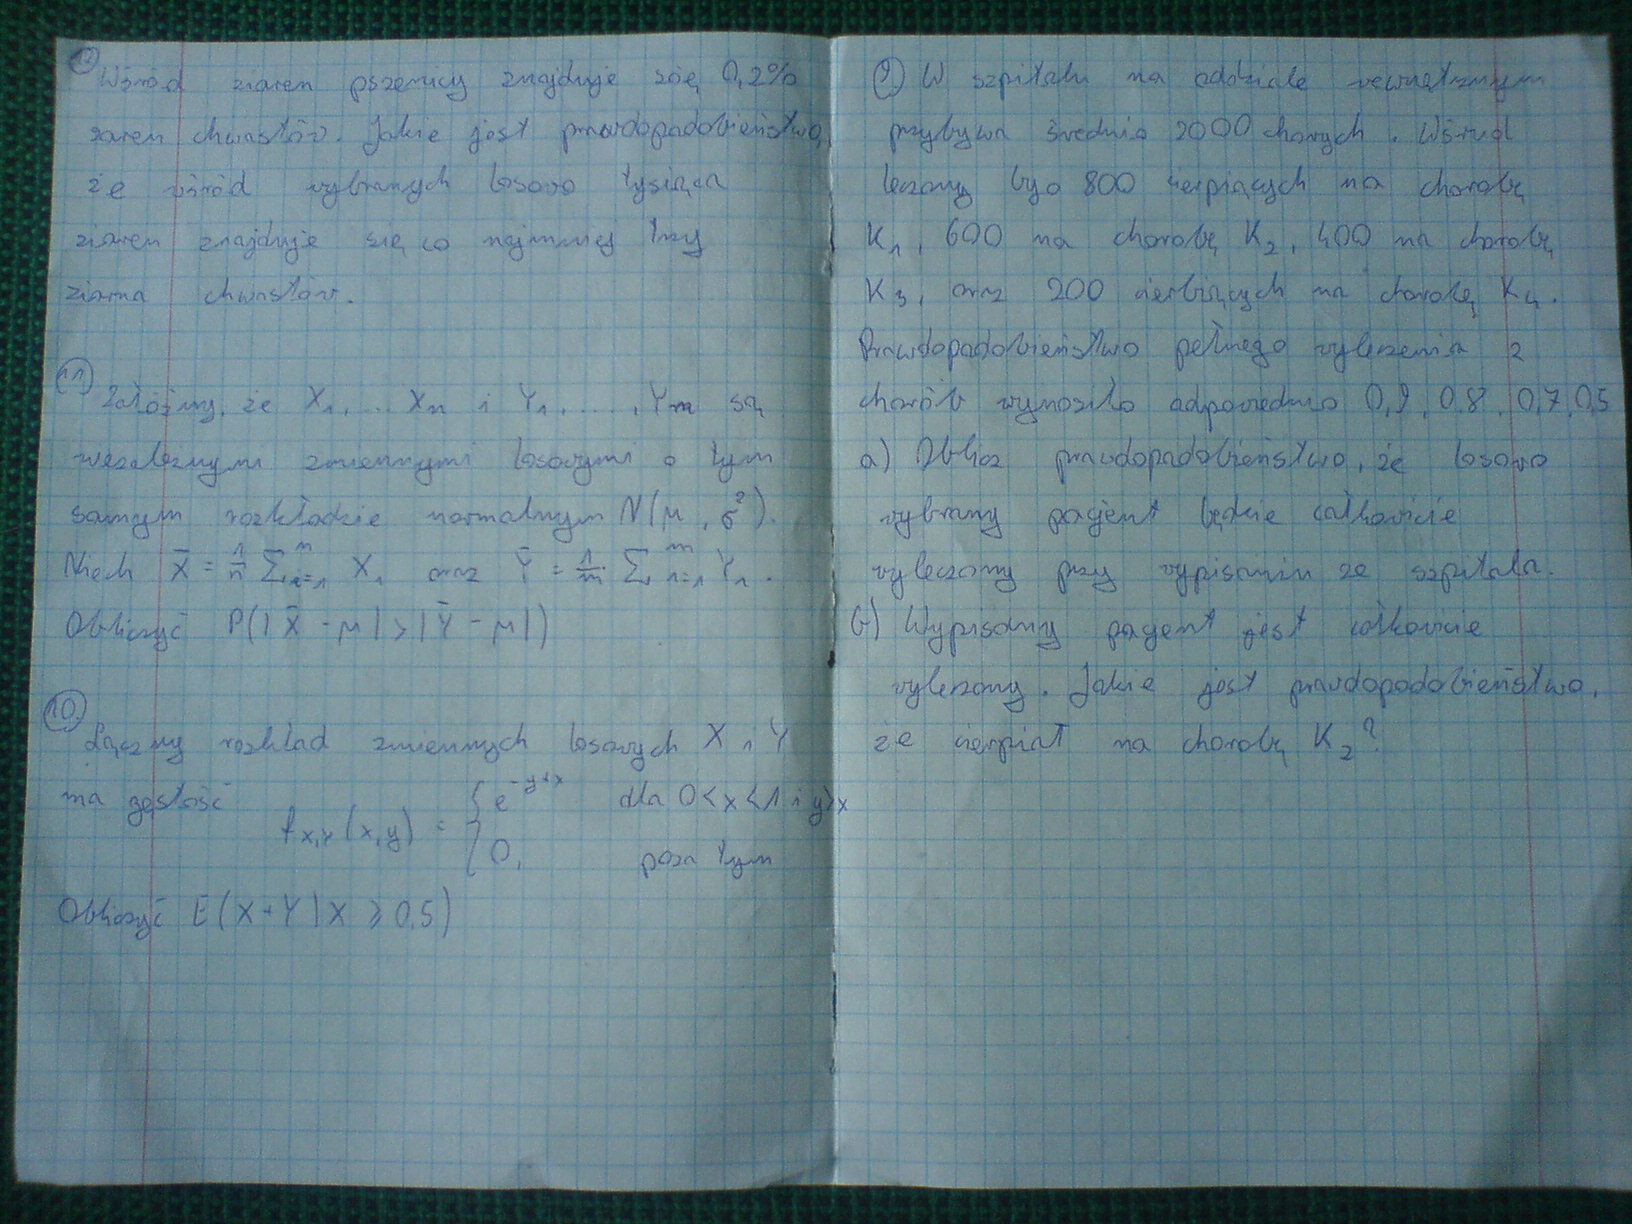 12 Wśród ziaren pszenicy znajduje się 0,2%
ziaren chwastów. Jakie jest prawdopodobieństwo,
że wśród wybranych losowo tysiąca
ziaren znajduje się co najmniej trzy
ziarna chwastów.
11) Załóżmy, że X₁, ... Xn i Y₁, ...., Ym są
niezależnymi zmiennymi losowymi o tym
samym rozkładzie normalnym N(μ, σ²).
Niech X̄ = 1/n ∑ⁿᵢ₌₁ X₁ oraz Ȳ = 1/m ∑ᵐᵢ₌₁ Y₁.
Obliczyć P(|X̄ - μ| > |Ȳ - μ|)
10. Łączny rozkład zmiennych losowych X i Y
ma gęstość
f x,y (x,y) = { e^-y+x dla 0<x<1 i y>x
0, poza tym
Obliczyć E(X+Y|X ≥ 0,5)
9) W szpitalu na oddziale wewnętrznym
przybywa średnio 2000 chorych. Wśród
leczony byo 800 cierpiących na chorobę
K₁, 600 na chorobę K₂, 400 na chorobę
K₃, oraz 200 cierpiących na chorobę K₄.
Prawdopodobieństwo pełnego wyleczenia z
chorób wynosiło odpowiednio 0,9, 0,8, 0,7, 0,5
a) Oblicz prawdopodobieństwo, że losowo
wybrany pacjent będzie całkowicie
wyleczony przy wypisaniu ze szpitala.
b) Wypisany pacjent jest całkowicie
wyleczony. Jakie jest prawdopodobieństwo,
że cierpiał na chorobę K₂?